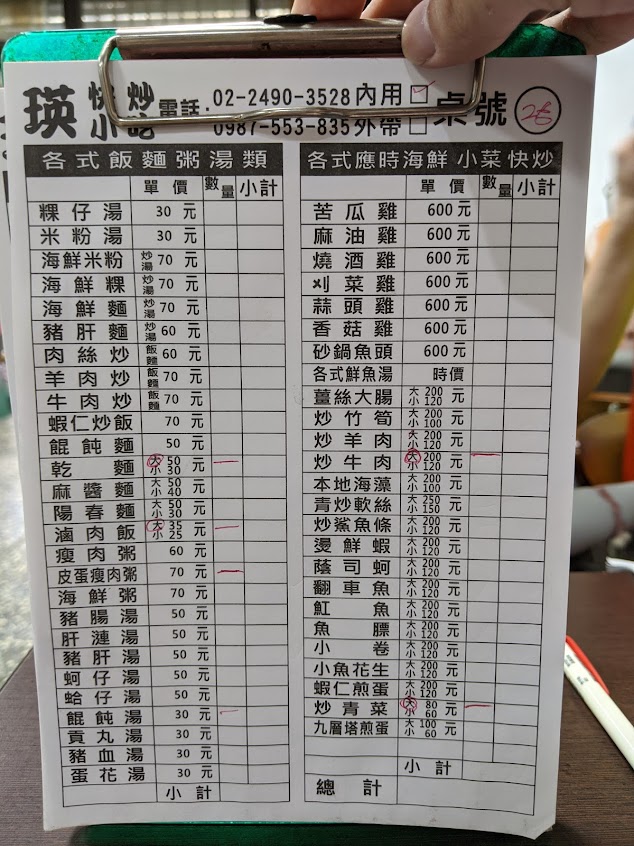 瑛 快炒 小吃 電話 02-2490-3528 內用 桌號 26
0987-553-835 外帶
各式飯麵粥湯類
單價 數量 小計
粿仔湯 30 元
米粉湯 30 元
海鮮米粉 炒湯 70 元
海鮮粿 炒湯 70 元
海鮮麵 炒湯 70 元
豬肝麵 炒湯 60 元
肉絲炒 飯麵 60 元
羊肉炒 飯麵 70 元
牛肉炒 飯麵 70 元
蝦仁炒飯 70 元
餛飩麵 50 元
乾麵 大 50 小 30 元 一
麻醬麵 大 50 小 40 元
陽春麵 大 50 小 30 元
滷肉飯 大 35 小 25 元 一
瘦肉粥 60 元
皮蛋瘦肉粥 70 元 一
海鮮粥 70 元
豬腸湯 50 元
肝漣湯 50 元
豬肝湯 50 元
蚵仔湯 50 元
蛤仔湯 50 元
餛飩湯 30 元 一
貢丸湯 30 元
豬血湯 30 元
蛋花湯 30 元
小計
各式應時海鮮小菜快炒
單價 數量 小計
苦瓜雞 600 元
麻油雞 600 元
燒酒雞 600 元
刈菜雞 600 元
蒜頭雞 600 元
香菇雞 600 元
砂鍋魚頭 600 元
各式鮮魚湯 時價
薑絲大腸 大 200 小 120 元
炒竹筍 大 200 小 100 元
炒羊肉 大 200 小 120 元
炒牛肉 大 200 小 120 元 一
本地海藻 大 200 小 100 元
青炒軟絲 大 250 小 150 元
炒鯊魚條 大 200 小 120 元
燙鮮蝦 大 200 小 120 元
蔭司蚵 大 200 小 120 元
翻車魚 大 200 小 120 元
魟魚 大 200 小 120 元
魚膘 大 200 小 120 元
小卷 大 200 小 120 元
小魚花生 大 200 小 120 元
蝦仁煎蛋 大 200 小 120 元
炒青菜 大 80 小 60 元 一
九層塔煎蛋 大 100 小 60 元
小計
總計